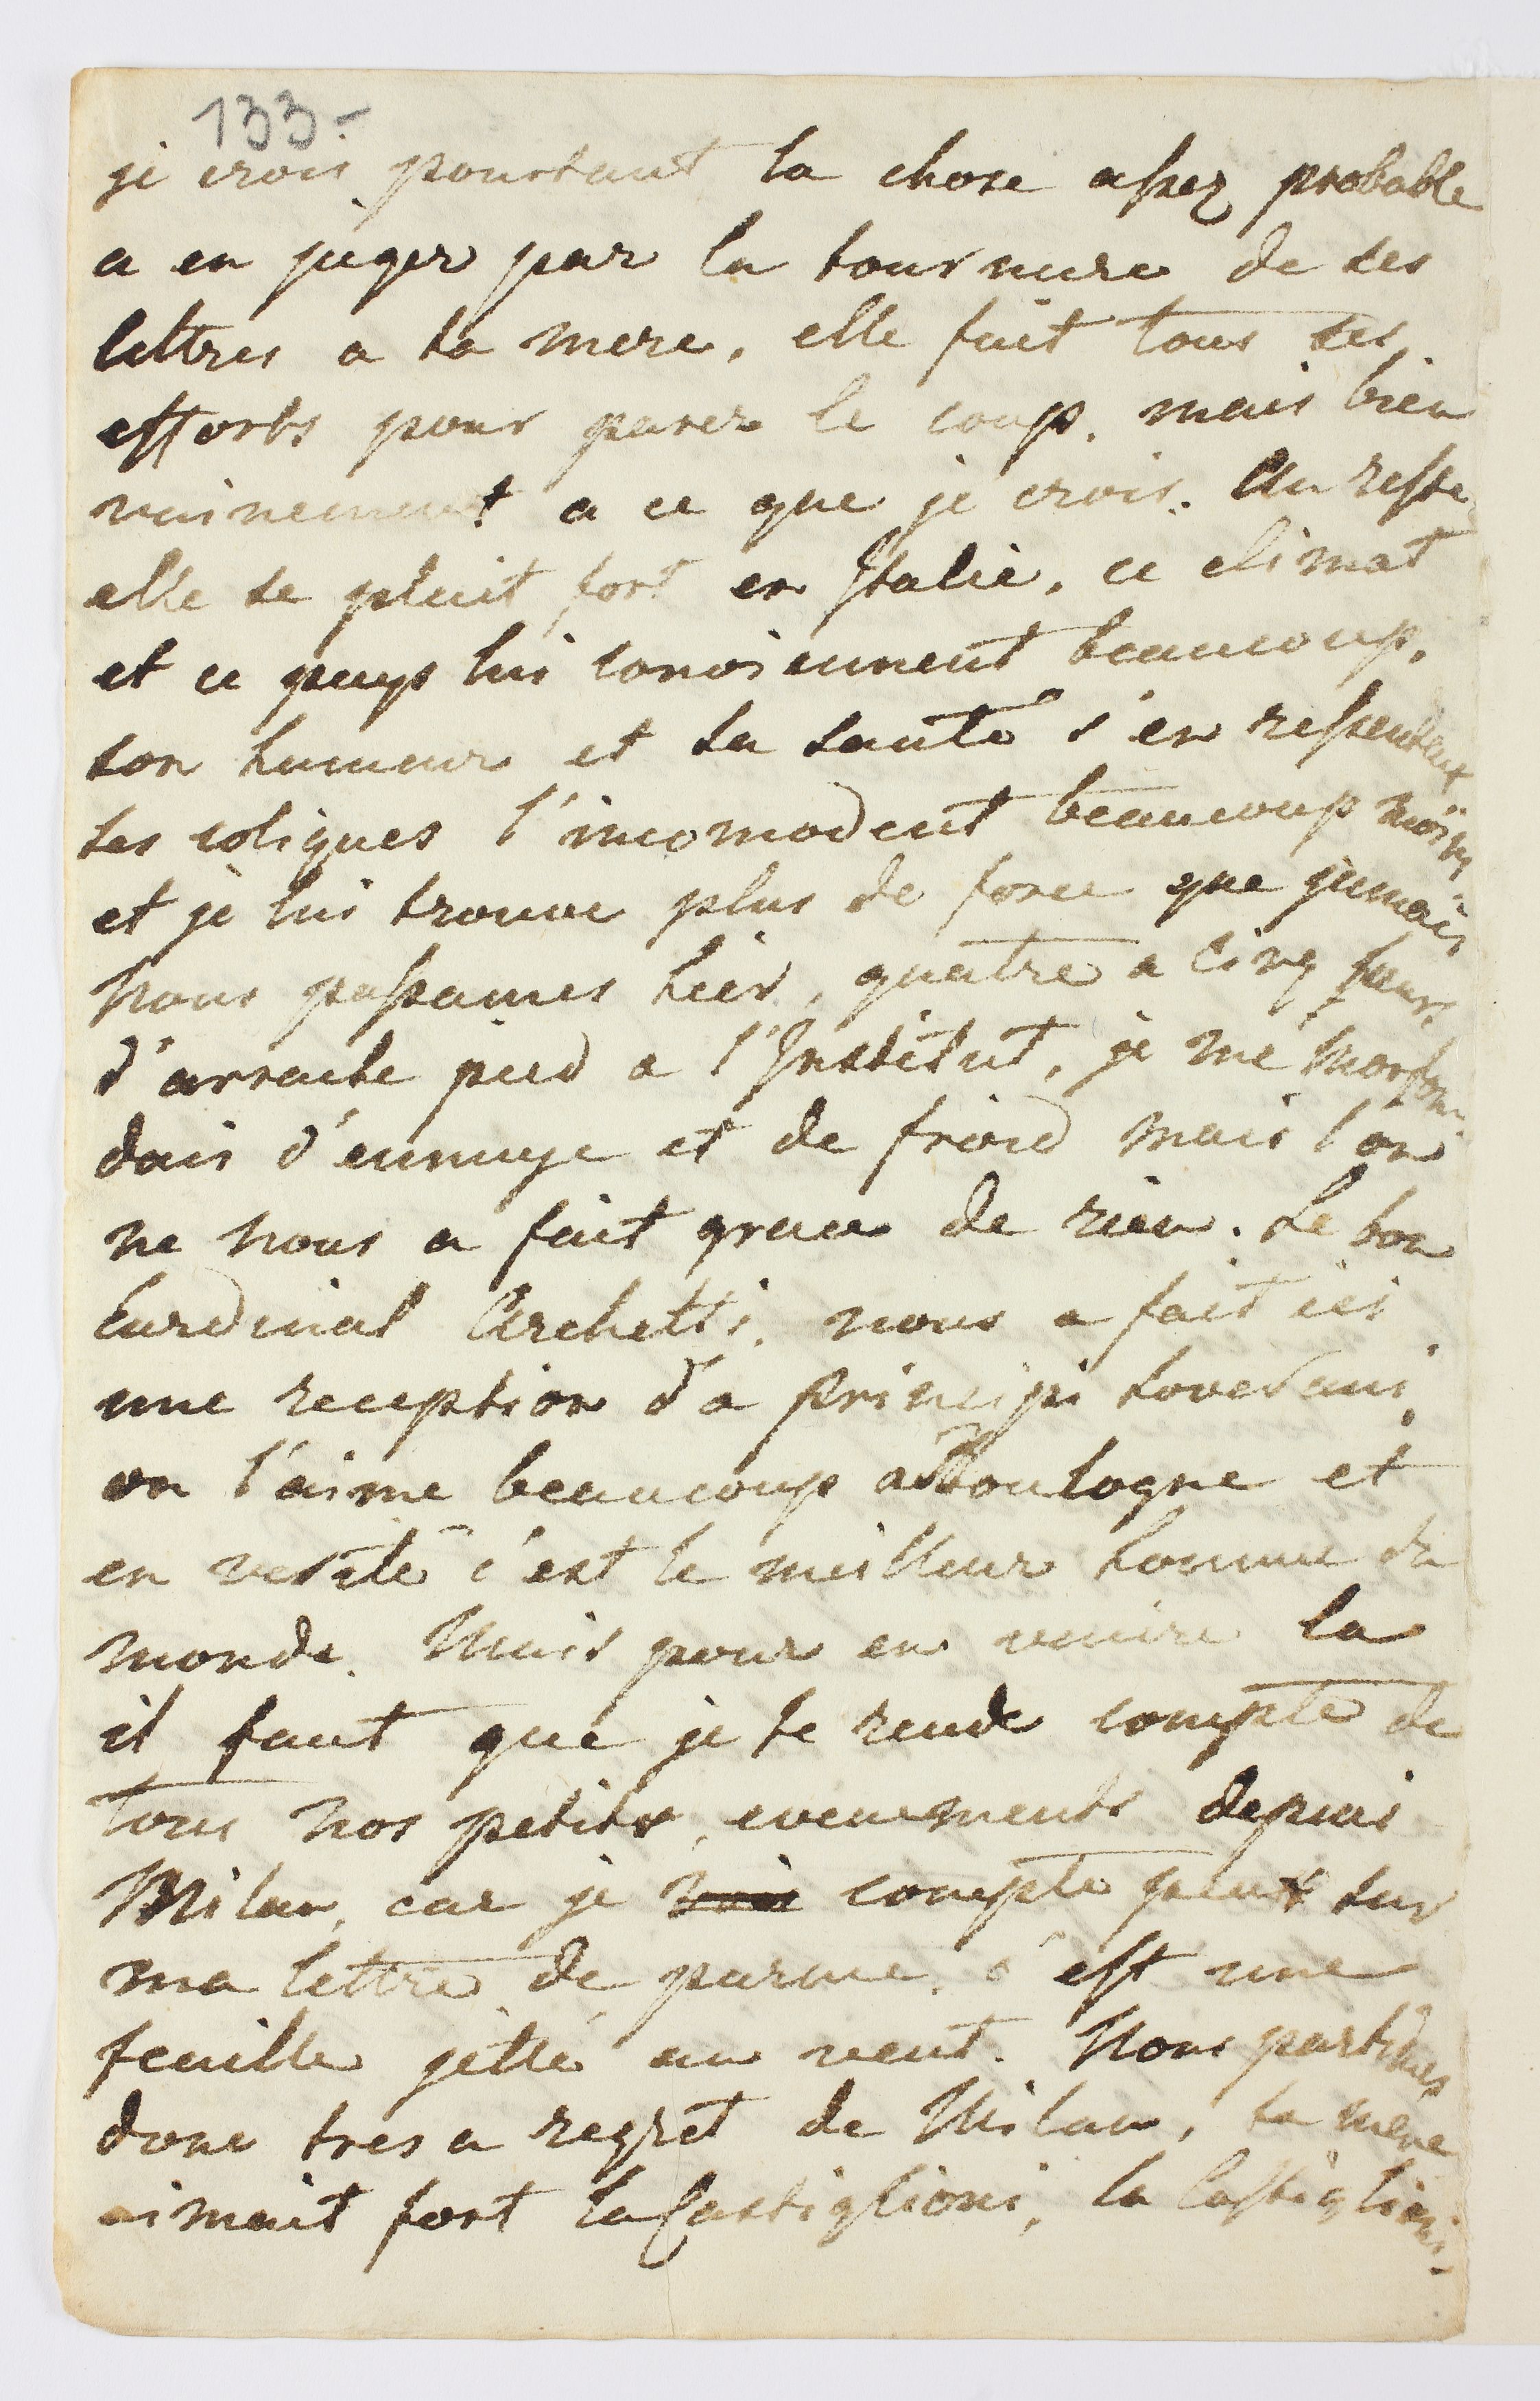 133-
je crois pourtant la chose assez probable
a en juger par la tournure de ses
lettres a ta mere, elle fait tous ses
efforts pour parer le coup, mais bien
vainement a ce que je crois. Au reste
elle se plait fort en Italie, ce climat
et ce pays lui conviennent beaucoup,
son humeur et sa santé s'en ressentent
ses coliques l'incomodent beaucoup moins
et je lui trouve plus de force que jamais
Nous passames hier, quatre a cinq heurs
d'arrache pied a l'Institut, je me morfon-
dais d'ennuye et de froid mais l'on
ne nous a fait grace de rien. Le bon
Cardinal Archetti, nous a fait ici
une reception d'a principi soverani,
on l'aime beaucoup a Boulogne et
en verité c'est le meilleur homme du
monde. Mais pour en venire la
il faut que je te rende compte de
tous nos petits evenements depuis
Milan, car je compte peut sur
ma lettre de parme, c'est une
feuille jetté au vent. Nous partimes
donc tres a regret de Milan, ta mere
aimait fort la Castiglioni, la Castiglioni-